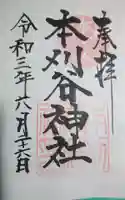 奉拝
本刈谷神社
令和三年六月二十六日